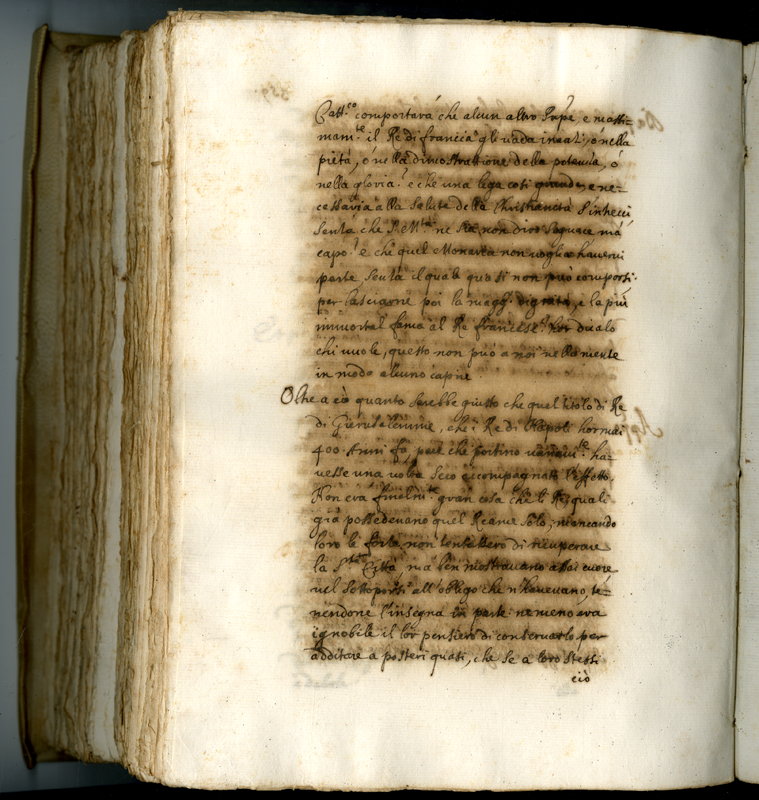 Catt.co comportarà che alcun altro Prñpe, e massi=
mam.te il Re di francia gli vada inãzi, ò nella
pietà, ò nella dimostrattione della potenza, ò
nella gloria? e che una lega cosi grande, e ne=
cessaria alla salute della Christianità s'intrecci
senza che S. M.tà ne sia non dirò seguace mà
capo? e che quel Monarca non voglia havervi
parte, senza il quale quasi non può comporsi
per lasciarne poi la magg.r dignità, e la più
immortal fama al Re francese? hor dicalo
chi vuole, questo non può a noi nella mente
in modo alcuno capire.
Oltre a ciò quanto sarebbe giusto che quel titolo di Re
di Gierusalemme, che i Re di Napoli hormai
400 Anni fà, pare che portino vanam.te ha=
vesse una volta seco accompagnato l'effetto.
Non era finalm.te gran cosa che li Re, quali
già possedevano quel Reame solo, mancando
loro le forze non tentassero di ricuperare
la S.ta Città, ma ben mostravano assai cuore
nel sottoporsi all'obligo che n'havevano, te=
nendone l'insegna in parte ne meno era
ignobile il lor pensiero di conservarlo per
additare a posteri quasi, che se a loro stessi
ciò